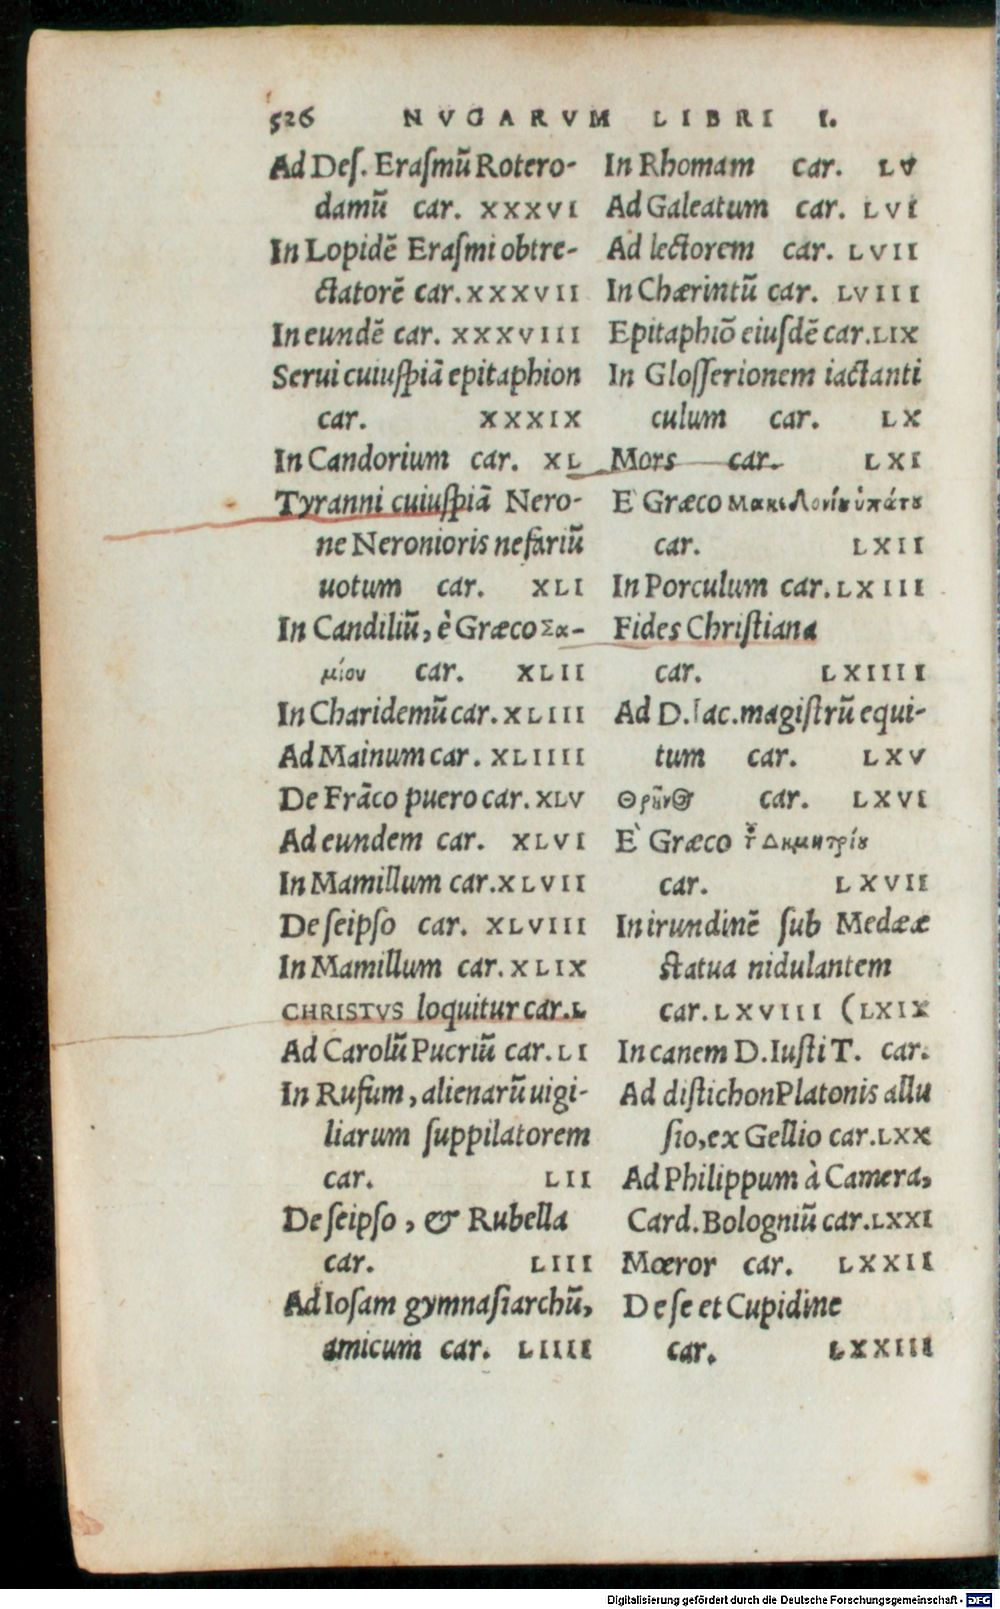 526 NVGARVM LIBRI I.
Ad Des. Erasmũ Rotero-
damũ car. XXXVI
In Lopidẽ Erasmi obtre-
ctatorẽ car. XXXVII
In eundẽ car. XXXVIII
Serui cuiuspiã epitaphion
car. XXXIX
In Candorium car. XL
Tyranni cuiuspiã Nero-
ne Neronioris nefariũ
uotum car. XLI
In Candiliũ, è Græco Σα-
μίου car. XLII
In Charidemũ car. XLIII
Ad Mainum car. XLIIII
De Frãco puero car. XLV
Ad eundem car. XLVI
In Mamillum car. XLVII
De seipso car. XLVIII
In Mamillum car. XLIX
CHRISTVS loquitur car. L
Ad Carolũ Pucriũ car. LI
In Rufum, alienarũ uigi-
liarum suppilatorem
car. LII
De seipso, & Rubella
car. LIII
Ad Iosam gymnasiarchũ,
amicum car. LIIII
In Rhomam car. LV
Ad Galeatum car. LVI
Ad lectorem car. LVII
In Chærintũ car. LVIII
Epitaphiõ eiusdẽ car. LIX
In Glosserionem iactanti
culum car. LX
Mors car. LXI
E Græco Μακεδονίȣ ὑπάτȣ
car. LXII
In Porculum car. LXIII
Fides Christiana
car. LXIIII
Ad D. Iac. magistrũ equi-
tum car. LXV
Θρῆνος car. LXVI
E Græco τȣ͂ Δημητρίȣ
car. LXVII
In irundinẽ sub Medææ
statua nidulantem
car. LXVIII (LXIX
In canem D. Iusti T. car.
Ad distichon Platonis allu
sio, ex Gellio car. LXX
Ad Philippum à Camera,
Card. Bologniũ car. LXXI
Mœror car. LXXII
De se et Cupidine
car. LXXIII
Digitalisierung gefördert durch die Deutsche Forschungsgemeinschaft - DFG